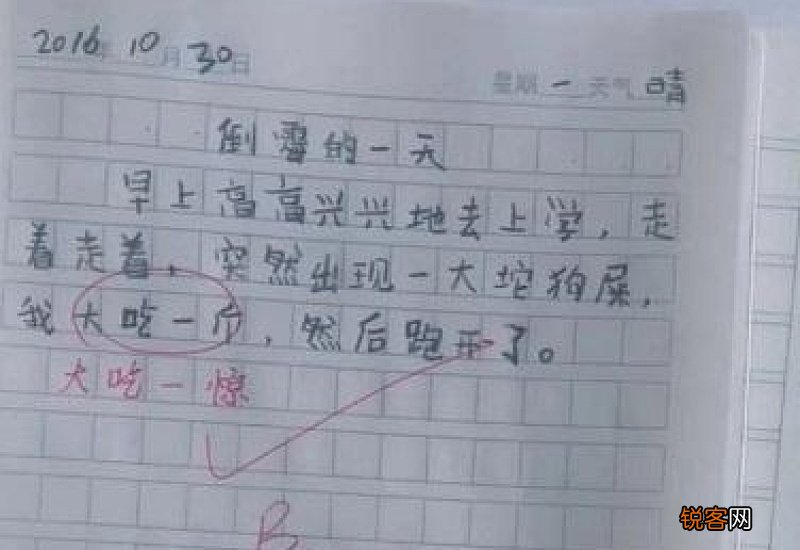 2016年10月30日
星期一天气晴
倒霉的一天
早上高高兴兴地去上学，走
着走着，突然出现一大坨狗屎，
我大吃一斤，然后跑开了。
大吃一惊
B
锐客网